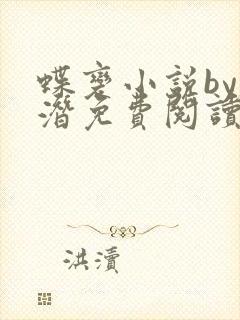 蝶裳小说by
潜免費閱讀
洪瀆